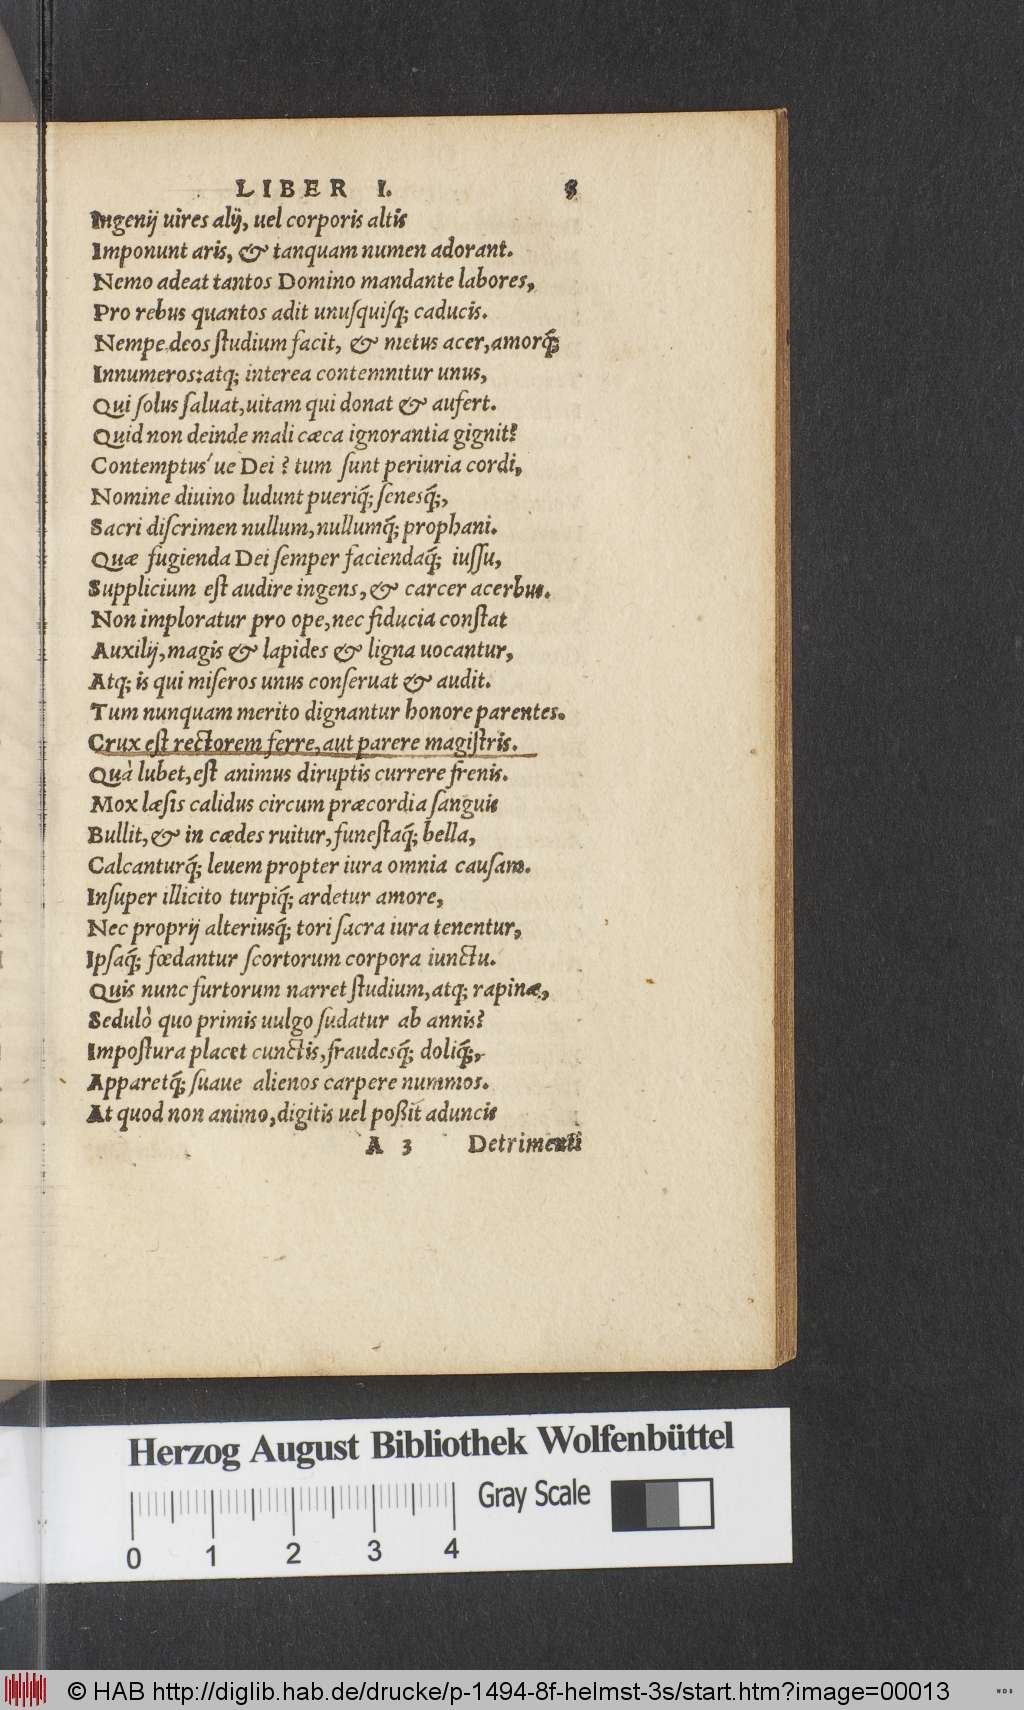 LIBER I. 5
Ingenij uires alij, uel corporis altis
Imponunt aris, & tanquam numen adorant.
Nemo adeat tantos Domino mandante labores,
Pro rebus quantos adit unuſquiſq; caducis.
Nempe deos ſtudium facit, & metus acer, amorq́;
Innumeros: atq; interea contemnitur unus,
Qui ſolus ſaluat, uitam qui donat & aufert.
Quid non deinde mali cæca ignorantia gignit?
Contemptus'ue Dei? tum ſunt periuria cordi,
Nomine diuino ludunt pueriq́; ſenesq́;,
Sacri diſcrimen nullum, nullumq́; prophani.
Quæ fugienda Dei ſemper faciendaq́; iuſſu,
Supplicium eſt audire ingens, & carcer acerbus.
Non imploratur pro ope, nec fiducia conſtat
Auxilij, magis & lapides & ligna uocantur,
Atq; is qui miſeros unus conſeruat & audit.
Tum nunquam merito dignantur honore parentes.
Crux eſt rectorem ferre, aut parere magiſtris.
Quà lubet, eſt animus diruptis currere frenis.
Mox læſis calidus circum præcordia ſanguis
Bullit, & in cædes ruitur, funeſtaq́; bella,
Calcanturq́; leuem propter iura omnia cauſam.
Inſuper illicito turpiq́; ardetur amore,
Nec proprij alteriusq́; tori ſacra iura tenentur,
Ipſaq́; fœdantur ſcortorum corpora iunctu.
Quis nunc furtorum narret ſtudium, atq; rapinæ,
Sedulò quo primis uulgo ſudatur ab annis?
Impoſtura placet cunctis, fraudesq́; doliq́;,
Apparetq́; ſuaue alienos carpere nummos.
At quod non animo, digitis uel poßit aduncis
A 3 Detrimenti
Herzog August Bibliothek Wolfenbüttel
Gray Scale
0 1 2 3 4
© HAB http://diglib.hab.de/drucke/p-1494-8f-helmst-3s/start.htm?image=00013